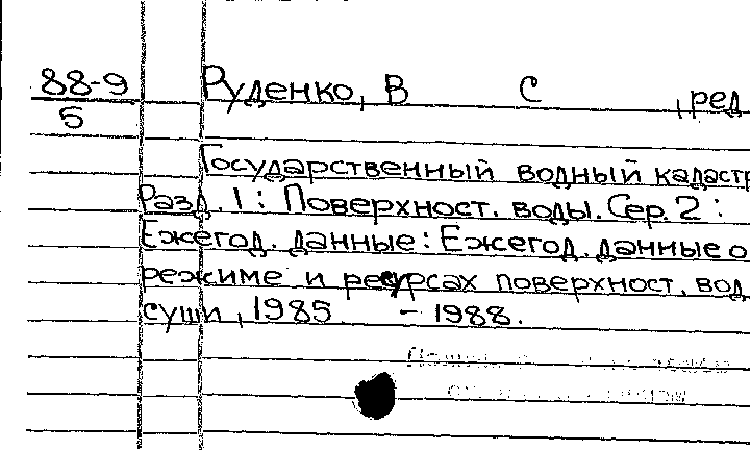 88-9 Руденко, В С , ред
5
Государственный водный кадастр
Разд. 1: Поверхност. воды. Сер. 2:
Ежегод. данные: Ежегод. данные о
режиме и ресурсах поверхност. вод
суши, 1985 - 1988.